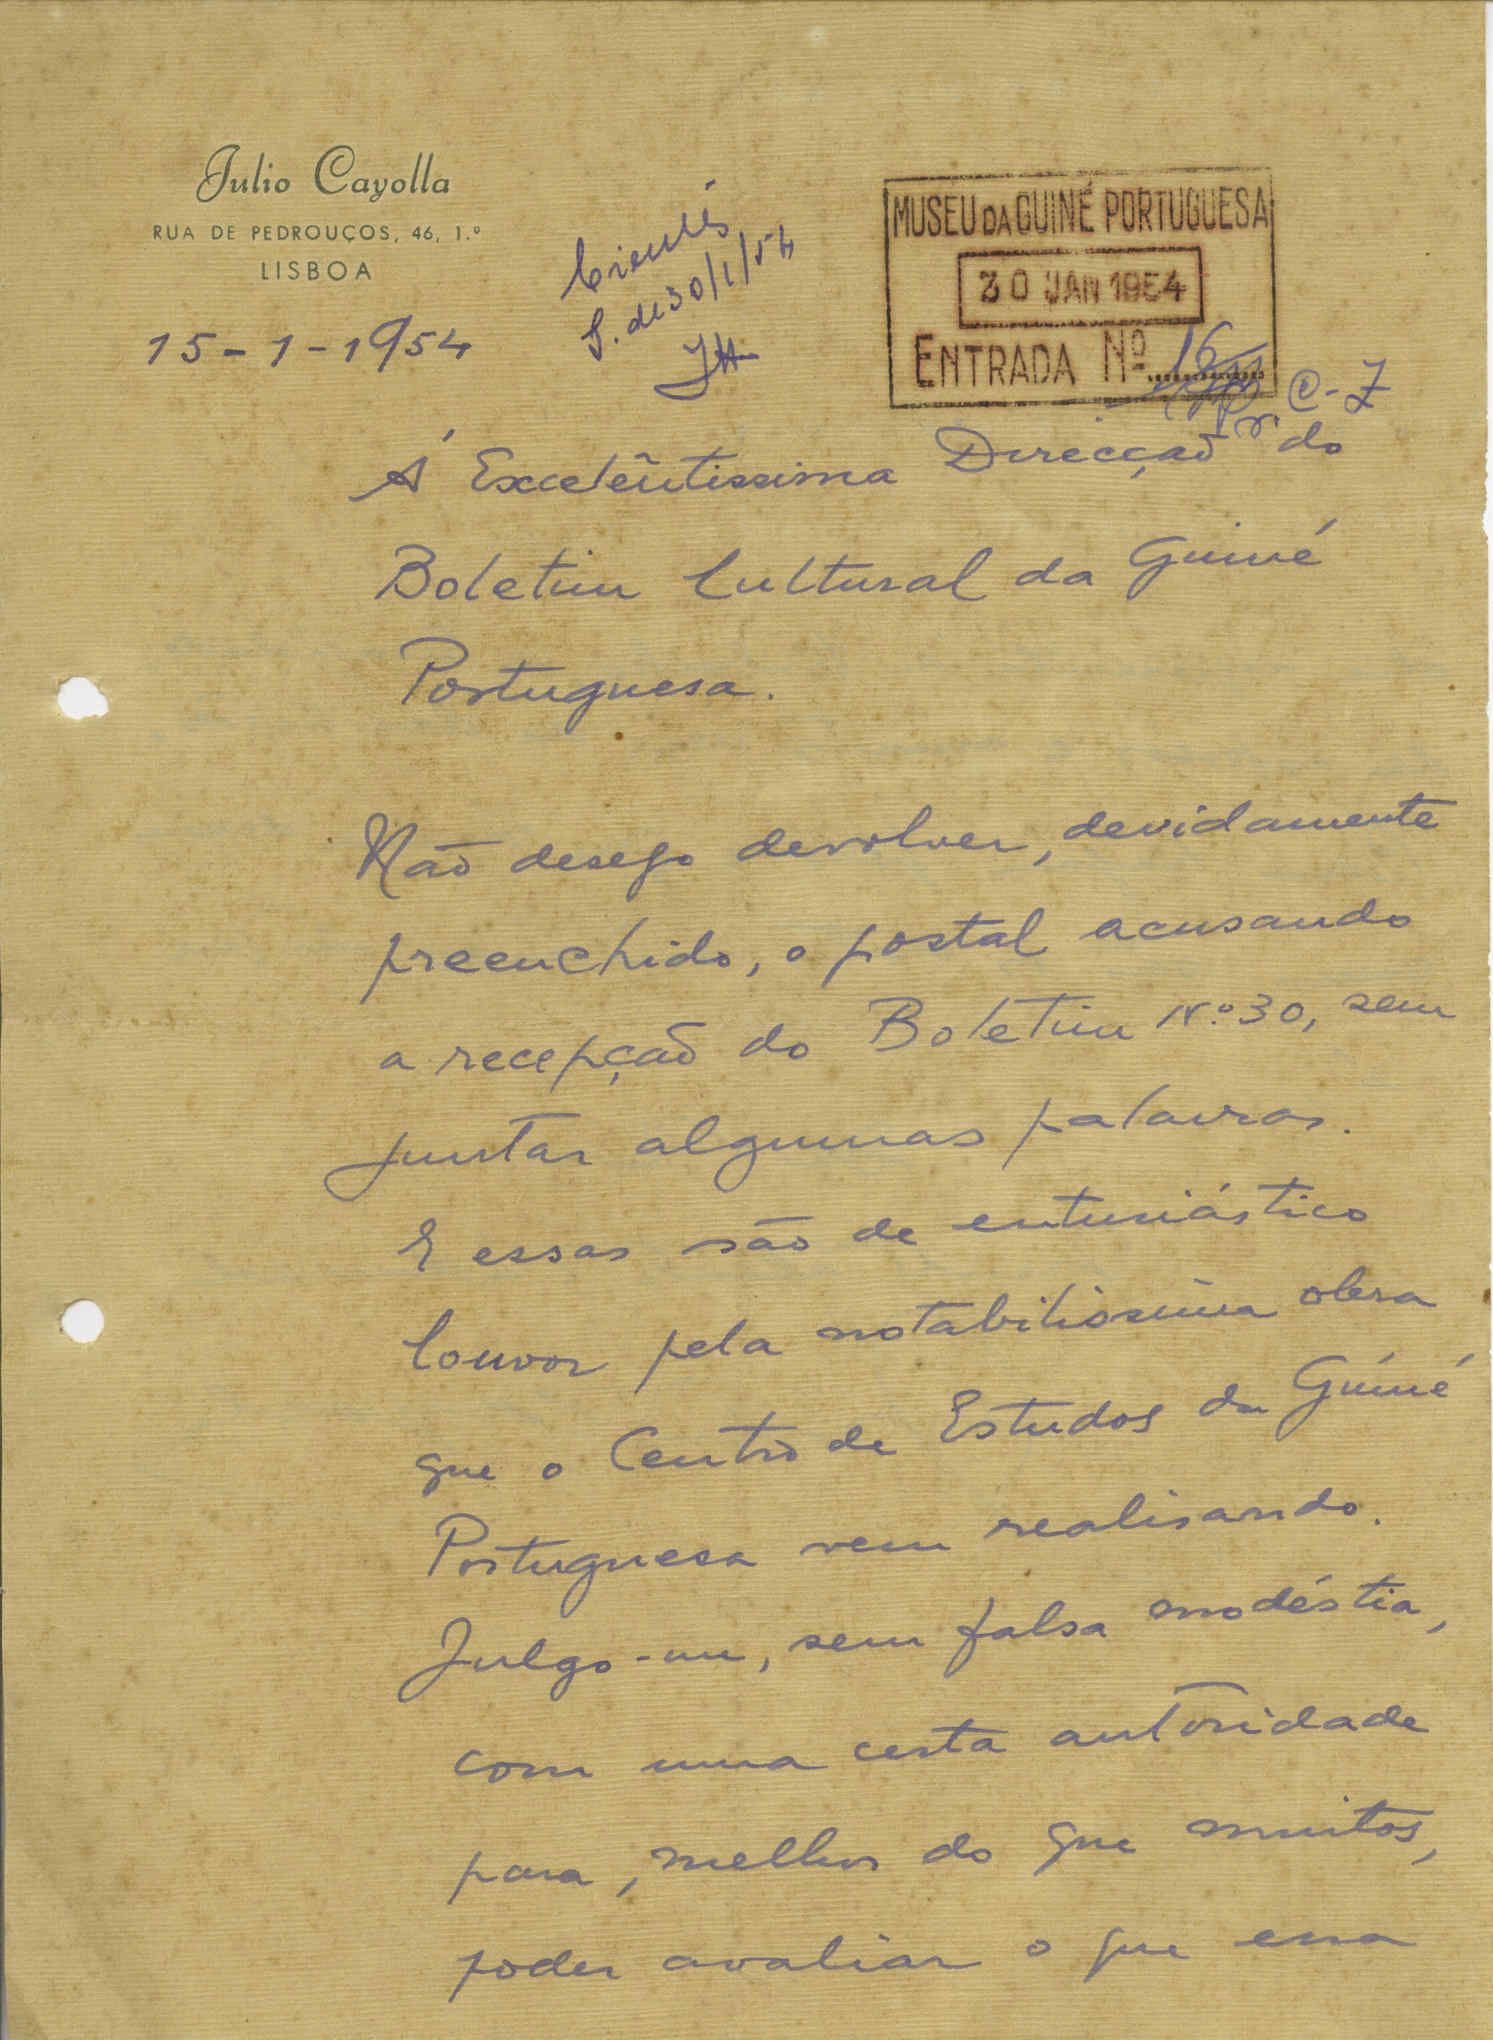 Julio Cayolla
RUA DE PEDROUÇOS, 46, 1.º
LISBOA
15-1-1954
S. de 30/1/54
MUSEU DA GUINÉ PORTUGUESA
30 JAN 1954
ENTRADA Nº 16
Pr. C-7
Á Excelêntissima Direcção do
Boletim Cultural da Guiné
Portuguesa.
Não desejo devolver, devidamente
preenchido, o postal acusando
a recepção do Boletim Nº 30, sem
juntar algumas palavras.
E essas são de entusiástico
louvor pela notabilissima obra
que o Centro de Estudos da Guiné
Portuguesa vem realisando.
Julgo-me, sem falsa modéstia,
com uma certa autoridade
para, melhor do que muitos,
poder avaliar o que essa